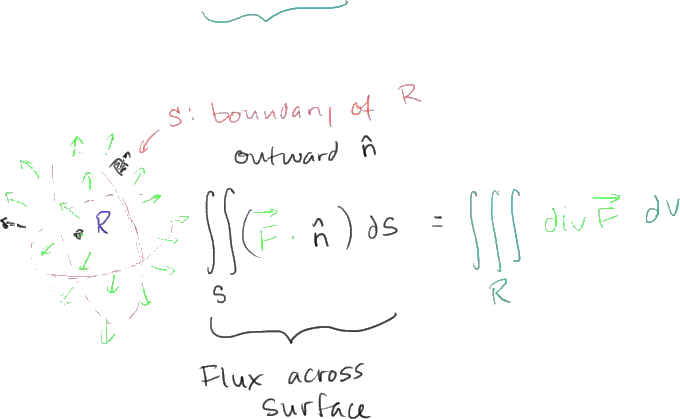 S: boundary of R
outward n̂
R
∬_S (F⃗ · n̂) ds = ∭_R div F⃗ dv
Flux across
surface